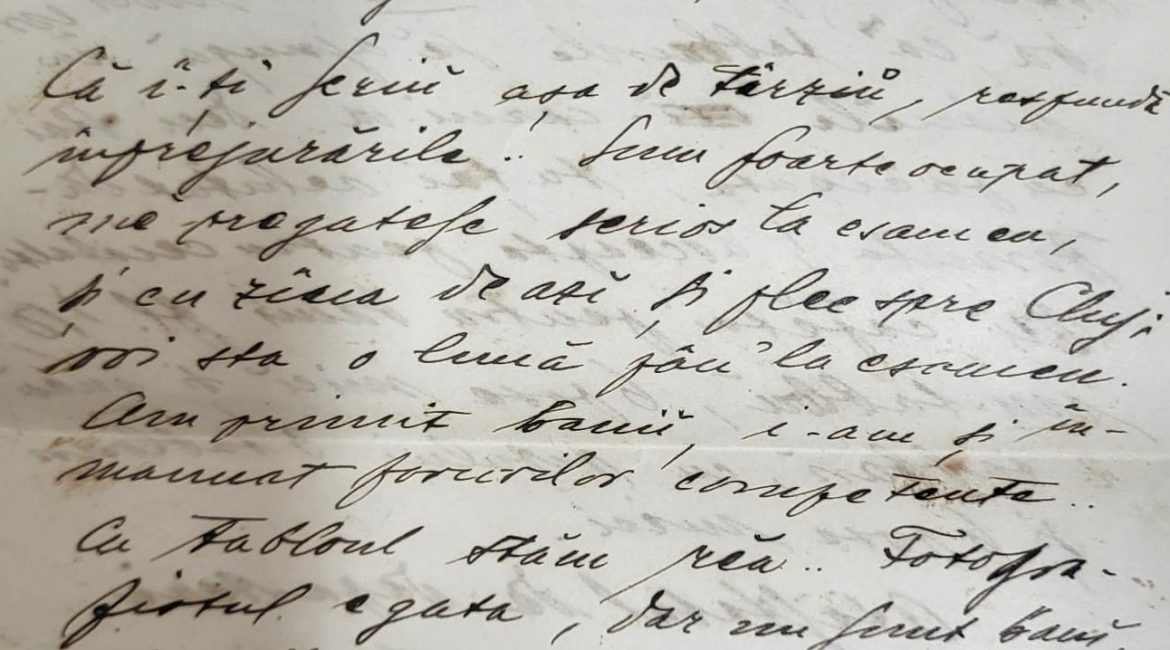 Că i-ți scriŭ așa de târziŭ, respunde
împrejurările.. Sunt foarte ocupat,
mĕ pregatesc serios la esamen,
și cu ziua de azĭ și plec spre Cluj;
voi sta o lună pân' la esamen.
Am primit banii, i-am și în-
manuat forurilor competente..
Cu tabloul stăm rĕu.. Fotogra-
fistul e gata, dar nu sunt banĭ,